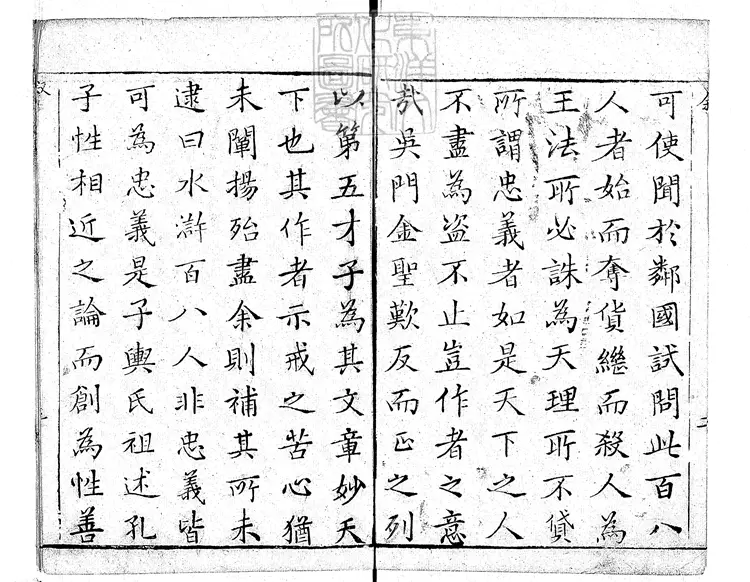 可使聞於鄰國試問此百八
人者始而奪貨繼而殺人為
王法所必誅為天理所不貸
所謂忠義者如是天下之人
不盡為盜不止豈作者之意
哉吳門金聖歎反而正之列
以第五才子為其文章妙天
下也其作者示戒之苦心猶
未闡揚殆盡余則補其所未
逮曰水滸百八人非忠義皆
可為忠義是子輿氏祖述孔
子性相近之論而創為性善